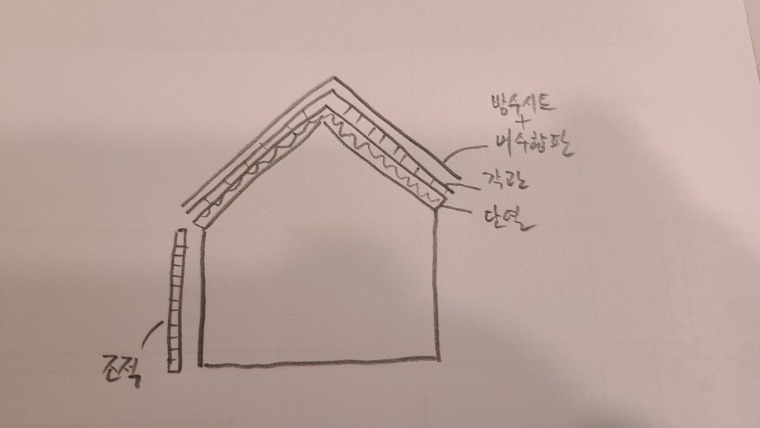 방수시트
+
내수합판
각관
단열
조적